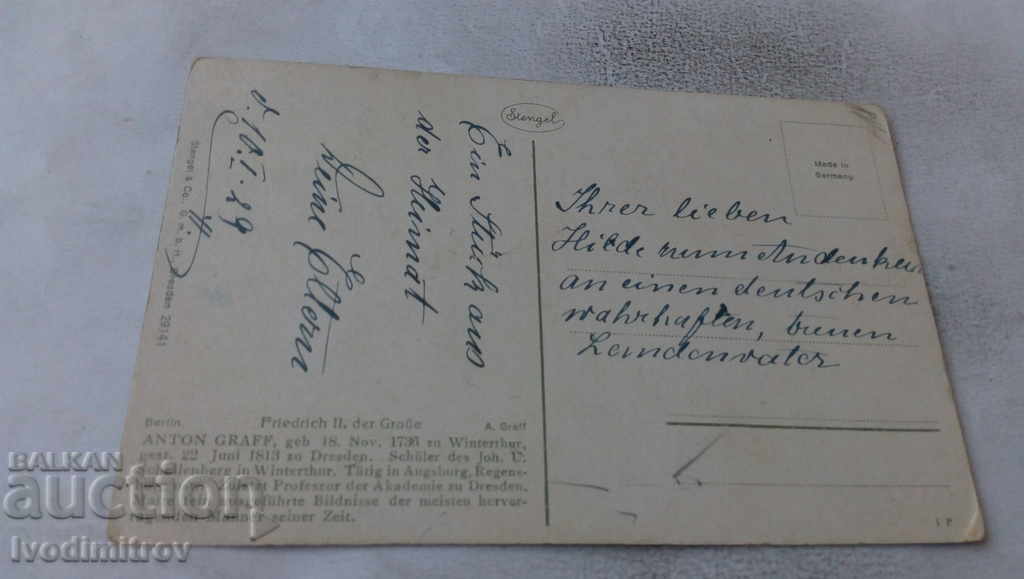 Stengel
Made in
Germany
Ihrer lieben
Hilde zum Andenken
an einen deutschen
wahrhaften, treuen
Landesvater
Ein Stück aus
der Heimat
Deine Eltern
d. 10. I. 29
Stengel & Co., G. m. b. H., Dresden 29141
Berlin Friedrich II. der Große A. Graff
ANTON GRAFF, geb 18. Nov. 1736 zu Winterthur,
gest. 22 Juni 1813 zu Dresden. Schüler des Joh. U.
Schellenberg in Winterthur. Tätig in Augsburg, Regens-
zuletzt Professor der Akademie zu Dresden.
ausgeführte Bildnisse der meisten hervor-
ragenden Männer seiner Zeit.
BALKAN
auction
Ivodimitrov